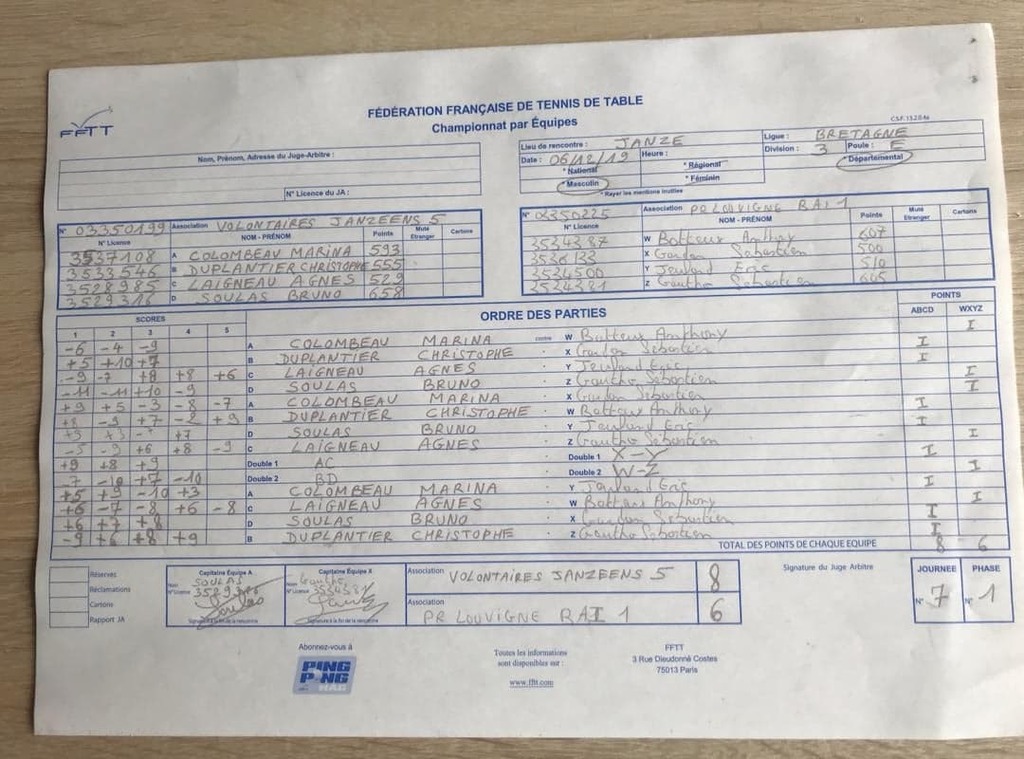 FFTT
FÉDÉRATION FRANÇAISE DE TENNIS DE TABLE
Championnat par Équipes
C.S.F. 13.2.8.4a
Nom, Prénom, Adresse du Juge-Arbitre :
N° Licence du JA :
Lieu de rencontre : JANZE
Ligue : BRETAGNE
Date : 06/12/19 Heure :
Division : 3 Poule : E
* National * Régional * Départemental
* Masculin * Féminin
* Rayer les mentions inutiles
N° 03350199 Association VOLONTAIRES JANZEENS 5
N° Licence NOM - PRÉNOM Points Muté Etranger Cartons
3537108 A COLOMBEAU MARINA 593
3533546 B DUPLANTIER CHRISTOPHE 555
3528985 C LAIGNEAU AGNES 529
3529316 D SOULAS BRUNO 658
N° 02350225 Association PR LOUVIGNE RAI 1
N° Licence NOM - PRÉNOM Points Muté Etranger Cartons
W Batteux Anthony 607
X Sebastien 500
3534500 Y Jeuland Eric 510
3534381 Z Gautho Sebastien
SCORES ORDRE DES PARTIES POINTS
1 2 3 4 5 ABCD WXYZ
-6 -4 -9 A COLOMBEAU MARINA contre W Batteux Anthony I
+5 +10 +7 B DUPLANTIER CHRISTOPHE X Sebastien I
-9 -7 +8 +8 +6 C LAIGNEAU AGNES Y Jeuland Eric I
-11 -11 +10 -9 D SOULAS BRUNO Z Gautho Sebastien I
+9 +5 -3 -8 -7 A COLOMBEAU MARINA X Sebastien I
+8 -9 +7 -2 +9 B DUPLANTIER CHRISTOPHE W Batteux Anthony I
D SOULAS BRUNO Y Jeuland Eric I
-5 -9 +6 +8 -9 C LAIGNEAU AGNES Z Gautho Sebastien I
+9 +8 +9 Double 1 AC Double 1 X-Y I
-7 -10 +7 -10 Double 2 BD Double 2 W-Z I
+5 +9 -10 +3 A COLOMBEAU MARINA Y Jeuland Eric I
+6 -7 -8 +6 -8 C LAIGNEAU AGNES W Batteux Anthony I
+6 +7 +8 D SOULAS BRUNO X Sebastien I
-9 +6 +8 +9 B DUPLANTIER CHRISTOPHE Z Gautho Sebastien I
TOTAL DES POINTS DE CHAQUE EQUIPE 8 6
Réserves
Réclamations
Cartons
Rapport JA
Capitaine Équipe A
Nom SOULAS
N° Licence
Signature à la fin de la rencontre
Capitaine Équipe B
Nom Gautho
N° Licence 3534381
Signature à la fin de la rencontre
Association VOLONTAIRES JANZEENS 5 8
Association PR LOUVIGNE RAI 1 6
Signature du Juge Arbitre
JOURNEE PHASE
N° 7 N° 1
Abonnez-vous à
PING PONG MAG
Toutes les informations
sont disponibles sur :
www.fftt.com
FFTT
3 Rue Dieudonné Costes
75013 Paris